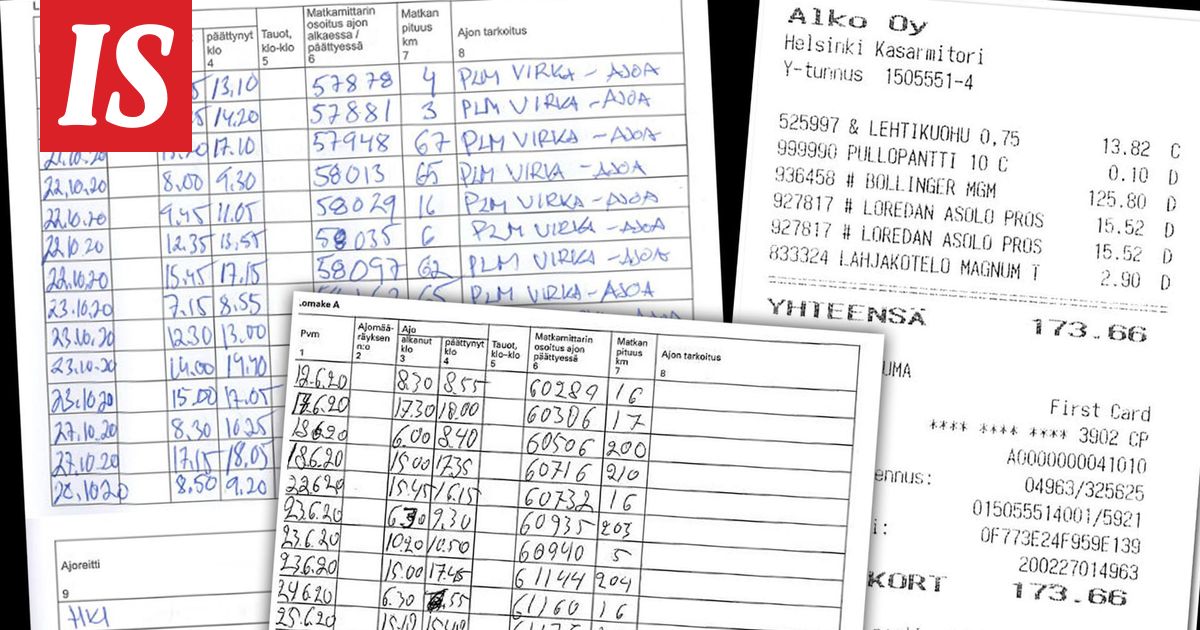 IS
päättynyt klo 4
Tauot, klo-klo 5
Matkamittarin osoitus ajon alkaessa / päättyessä 6
Matkan pituus km 7
Ajon tarkoitus 8
13.10 57878 4 PLM VIRKA - AJOA
14.20 57881 3 PLM VIRKA - AJOA
17.10 57948 67 PLM VIRKA - AJOA
22.10.20 8.00 9.30 58013 65 PLM VIRKA - AJOA
22.10.20 9.45 11.05 58029 16 PLM VIRKA - AJOA
22.10.20 12.35 13.55 58035 6 PLM VIRKA - AJOA
22.10.20 15.45 17.15 58097 62 PLM VIRKA - AJOA
23.10.20 7.15 8.55 PLM VIRKA - AJOA
23.10.20 12.30 13.00
23.10.20 14.00
23.10.20 15.00 17.05
27.10.20 8.30 10.25
27.10.20 17.15 18.05
8.50 9.20
Ajoreitti
9
HKI
Lomake A
Pvm 1
Ajomää-räyksen n:o 2
Ajo
alkanut klo 3
päättynyt klo 4
Tauot, klo-klo 5
Matkamittarin osoitus ajon päättyessä 6
Matkan pituus km 7
Ajon tarkoitus 8
12.6.20 8.30 8.55 60289 16
17.30 18.00 60306 17
18.6.20 6.00 8.40 60506 200
18.6.20 15.00 17.35 60716 210
22.6.20 15.45 16.15 60732 16
23.6.20 9.30 60935 203
23.6.20 10.20 10.50 60940 5
23.6.20 15.00 17.45 61144 204
24.6.20 6.30 61160 16
25.6.20
Alko Oy
Helsinki Kasarmitori
Y-tunnus 1505551-4
525997 & LEHTIKUOHU 0,75 13.82 C
999990 PULLOPANTTI 10 C 0.10 D
936458 # BOLLINGER MGM 125.80 D
927817 # LOREDAN ASOLO PROS 15.52 D
927817 # LOREDAN ASOLO PROS 15.52 D
833324 LAHJAKOTELO MAGNUM T 2.90 D
YHTEENSÄ 173.66
UMA
First Card
**** **** **** 3902 CP
A0000000041010
ennus: 04963/325625
015055514001/5921
i: 0F773E24F959E139
200227014963
KORT 173.66